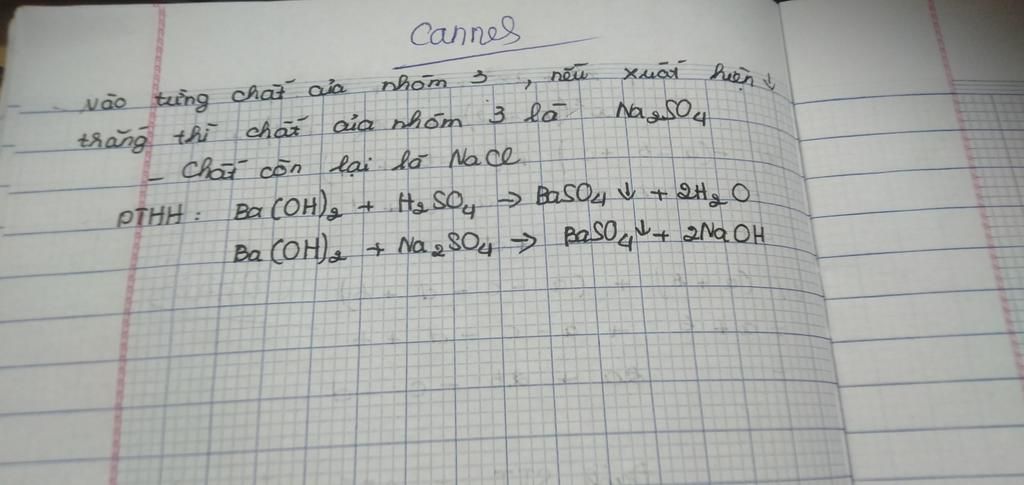 Cannes
vào từng chất của nhóm 3, nếu xuất hiện ↓
trắng thì chất của nhóm 3 là Na₂SO₄
- Chất còn lại là NaCl
PTHH: Ba(OH)₂ + H₂SO₄ → BaSO₄↓ + 2H₂O
Ba(OH)₂ + Na₂SO₄ → BaSO₄↓ + 2NaOH